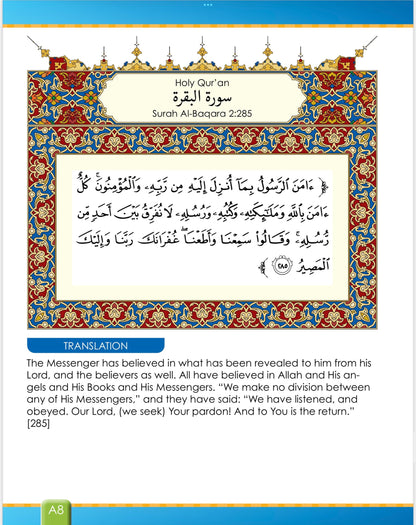 Holy Qur'an
سورة البقرة
Surah Al-Baqara 2:285
﴿ ءَامَنَ ٱلرَّسُولُ بِمَآ أُنزِلَ إِلَيْهِ مِن رَّبِّهِۦ وَٱلْمُؤْمِنُونَ ۚ كُلٌّ
ءَامَنَ بِٱللَّهِ وَمَلَـٰٓئِكَتِهِۦ وَكُتُبِهِۦ وَرُسُلِهِۦ لَا نُفَرِّقُ بَيْنَ أَحَدٍ مِّن
رُّسُلِهِۦ ۚ وَقَالُوا۟ سَمِعْنَا وَأَطَعْنَا ۖ غُفْرَانَكَ رَبَّنَا وَإِلَيْكَ
ٱلْمَصِيرُ ٢٨٥ ﴾
TRANSLATION
The Messenger has believed in what has been revealed to him from his
Lord, and the believers as well. All have believed in Allah and His an-
gels and His Books and His Messengers. “We make no division between
any of His Messengers,” and they have said: “We have listened, and
obeyed. Our Lord, (we seek) Your pardon! And to You is the return.”
[285]
A8